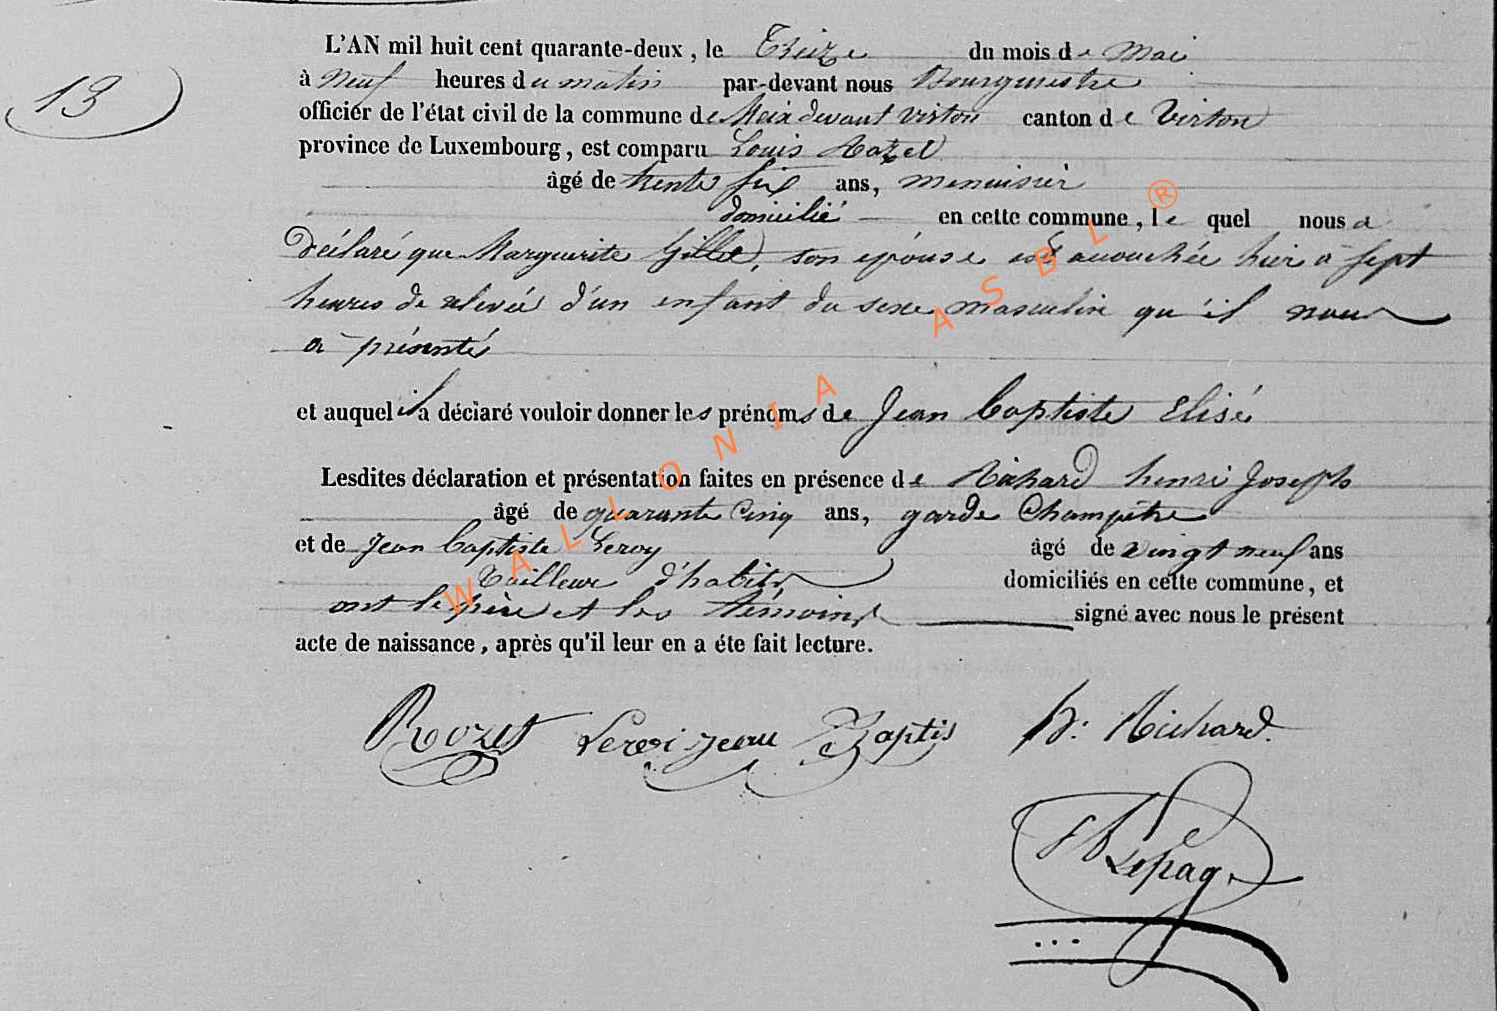 L'AN mil huit cent quarante-deux, le Treize du mois de Mai
13
à Neuf heures du matin par-devant nous Bourgmestre
officier de l'état civil de la commune de Meix devant virton canton de Virton
province de Luxembourg, est comparu Louis Rozet
âgé de trente six ans, menuisier
domicilié en cette commune, le quel nous a
Déclaré que Marguerite Gillet, son épouse est accouchée hier à sept
heures de relevée d'un enfant du sexe masculin qu'il nous
a présenté
et auquel il a déclaré vouloir donner les prénoms de Jean Baptiste Elisé
Lesdites déclaration et présentation faites en présence de Richard henri Joseph
âgé de quarante Cinq ans, garde Champêtre
et de Jean Baptiste Leroy âgé de vingt neuf ans
Tailleur d'habits domiciliés en cette commune, et
ont le père et les témoins signé avec nous le présent
acte de naissance, après qu'il leur en a éte fait lecture.
Rozet Leroi Jean Baptis h. Richard.
Lepage
WALLONIA ASBL ®